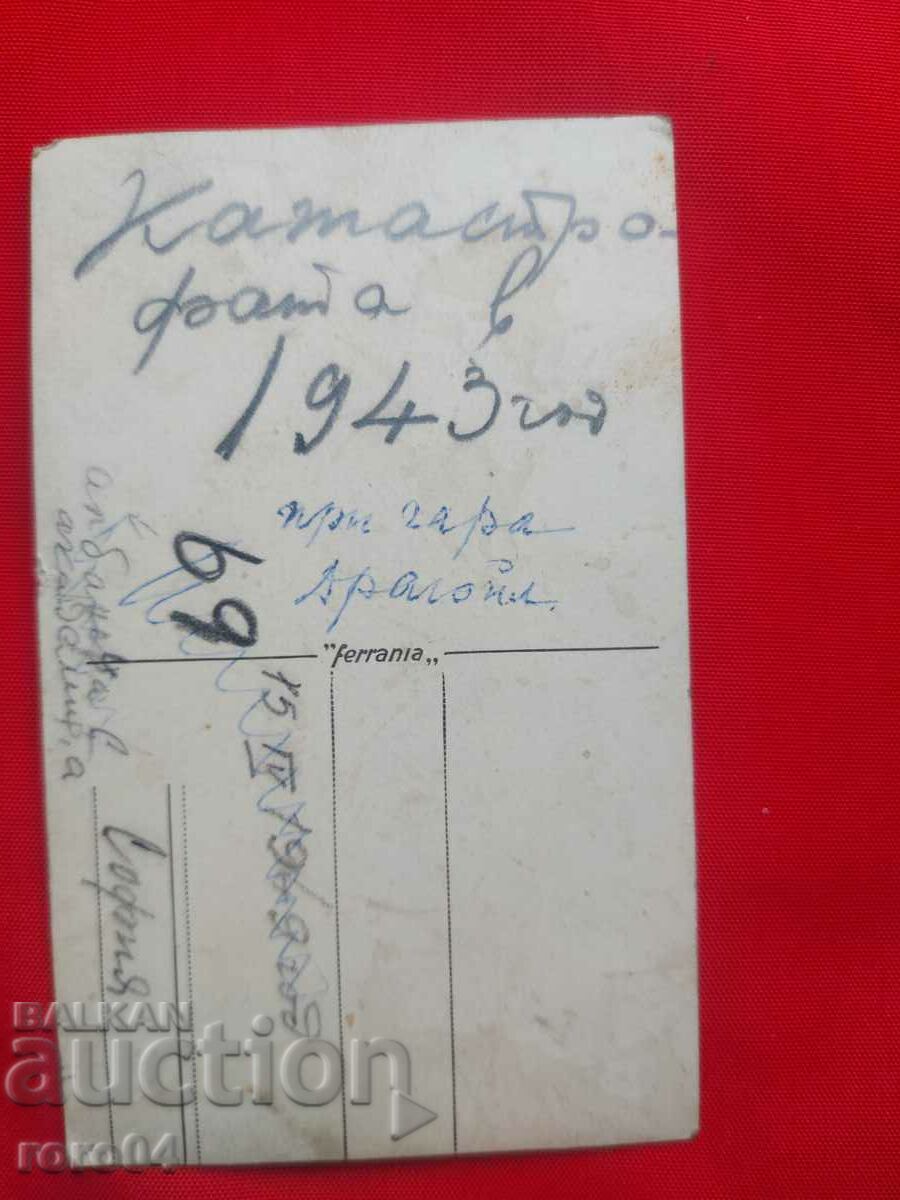 Катастро-
фата в
1943 год
при гара
Драгойл.
69
"ferrania"
15 IV
год
София
BALKAN
auction
roro04